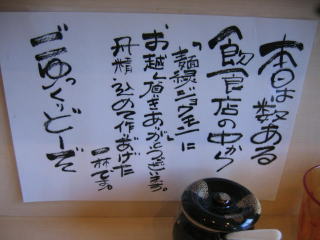 本日は数ある
飲食店の中から
「麺縁ジョモン」に
お越し頂きありがとうございます。
丹精込めて作りあげた
一杯です。
ごゆっくりどーぞ